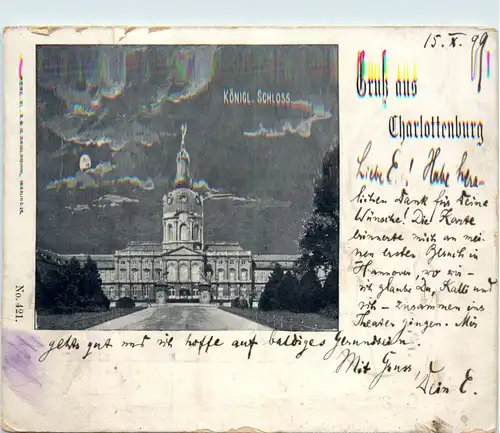 15. X. 99
Gruß aus
Charlottenburg
KÖNIGL. SCHLOSS
No. 421.
Liebe E.! Habe herz-
lichen Dank für Deine
Wünsche! Die Karte
erinnerte mich an mei-
nen ersten Besuch in
Hannover, wo wir –
ich glaube Du, Käthi und
ich – zusammen ins
Theater gingen. Mir
geht's gut und ich hoffe auf baldiges
Mit Gruss,
Dein E.